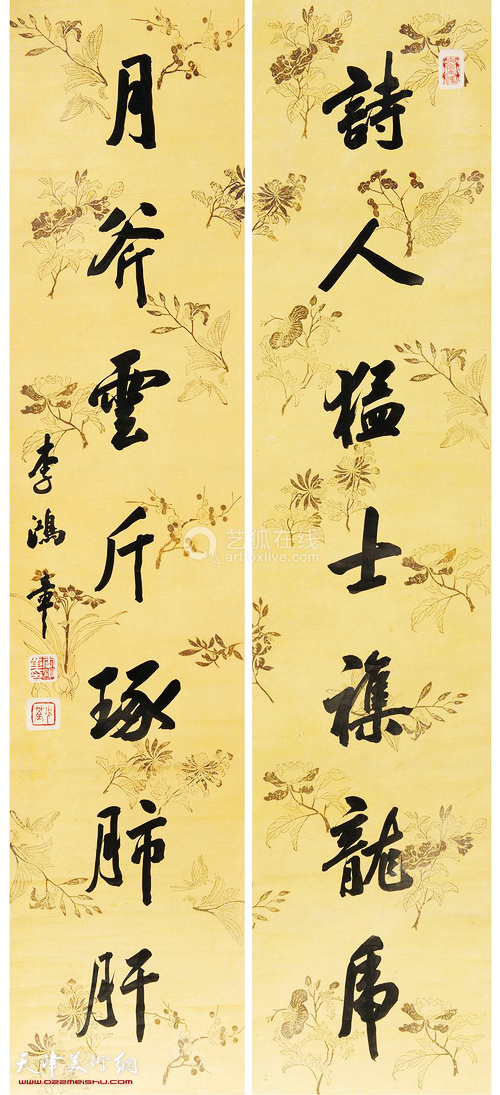 詩人猛士襍龍虎
月斧雲斤琢肺肝
李鴻章
艺狐在线
artfoxlive.com
天津美术網
www.022meishu.com